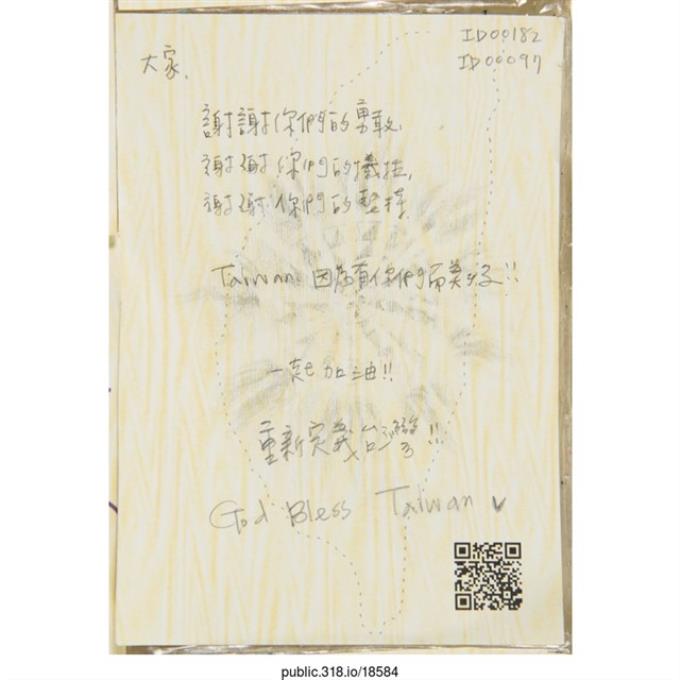 ID00182
ID00097
大家,
謝謝你們的勇敢,
謝謝你們的犧牲,
謝謝你們的堅持,
Taiwan 因為有你們而美好!!
一起加油!!
重新定義台灣!!
God Bless Taiwan
public.318.io/18584